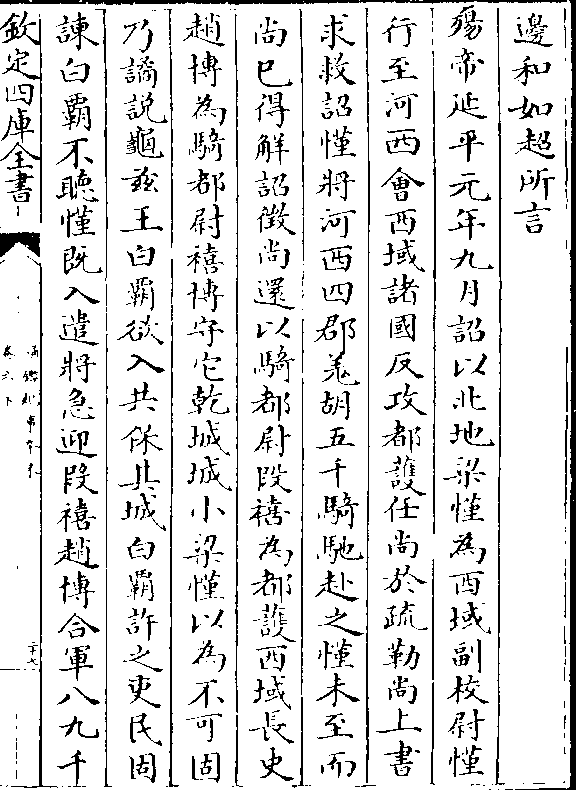 邊和如超所言
殤帝延平元年九月詔以北地梁慬為西域副校尉慬
行至河西會西域諸國反攻都護任尚於疏勒尚上書
求救詔慬將河西四郡羌胡五千騎馳赴之慬未至而
尚已得解詔徵尚還以騎都尉段禧為都護西域長史
趙博為騎都尉禧博守它乾城城小梁慬以為不可固
乃譎説龜兹王白霸欲入共保其城白霸許之吏民固
諫白霸不聽慬既入遣將急迎段禧趙博合軍八九千
欽定四庫全書